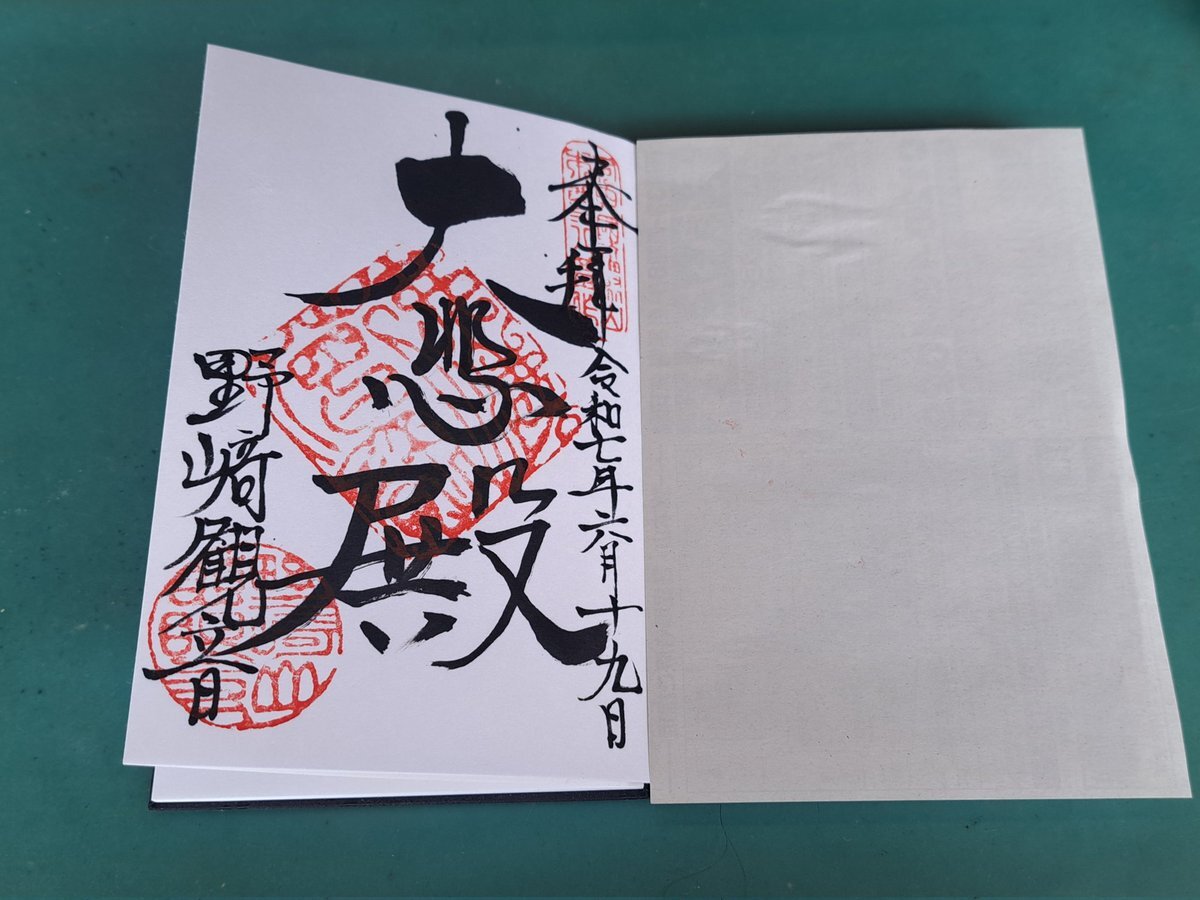 奉拝
令和七年六月十九日
大悲殿
野崎観音